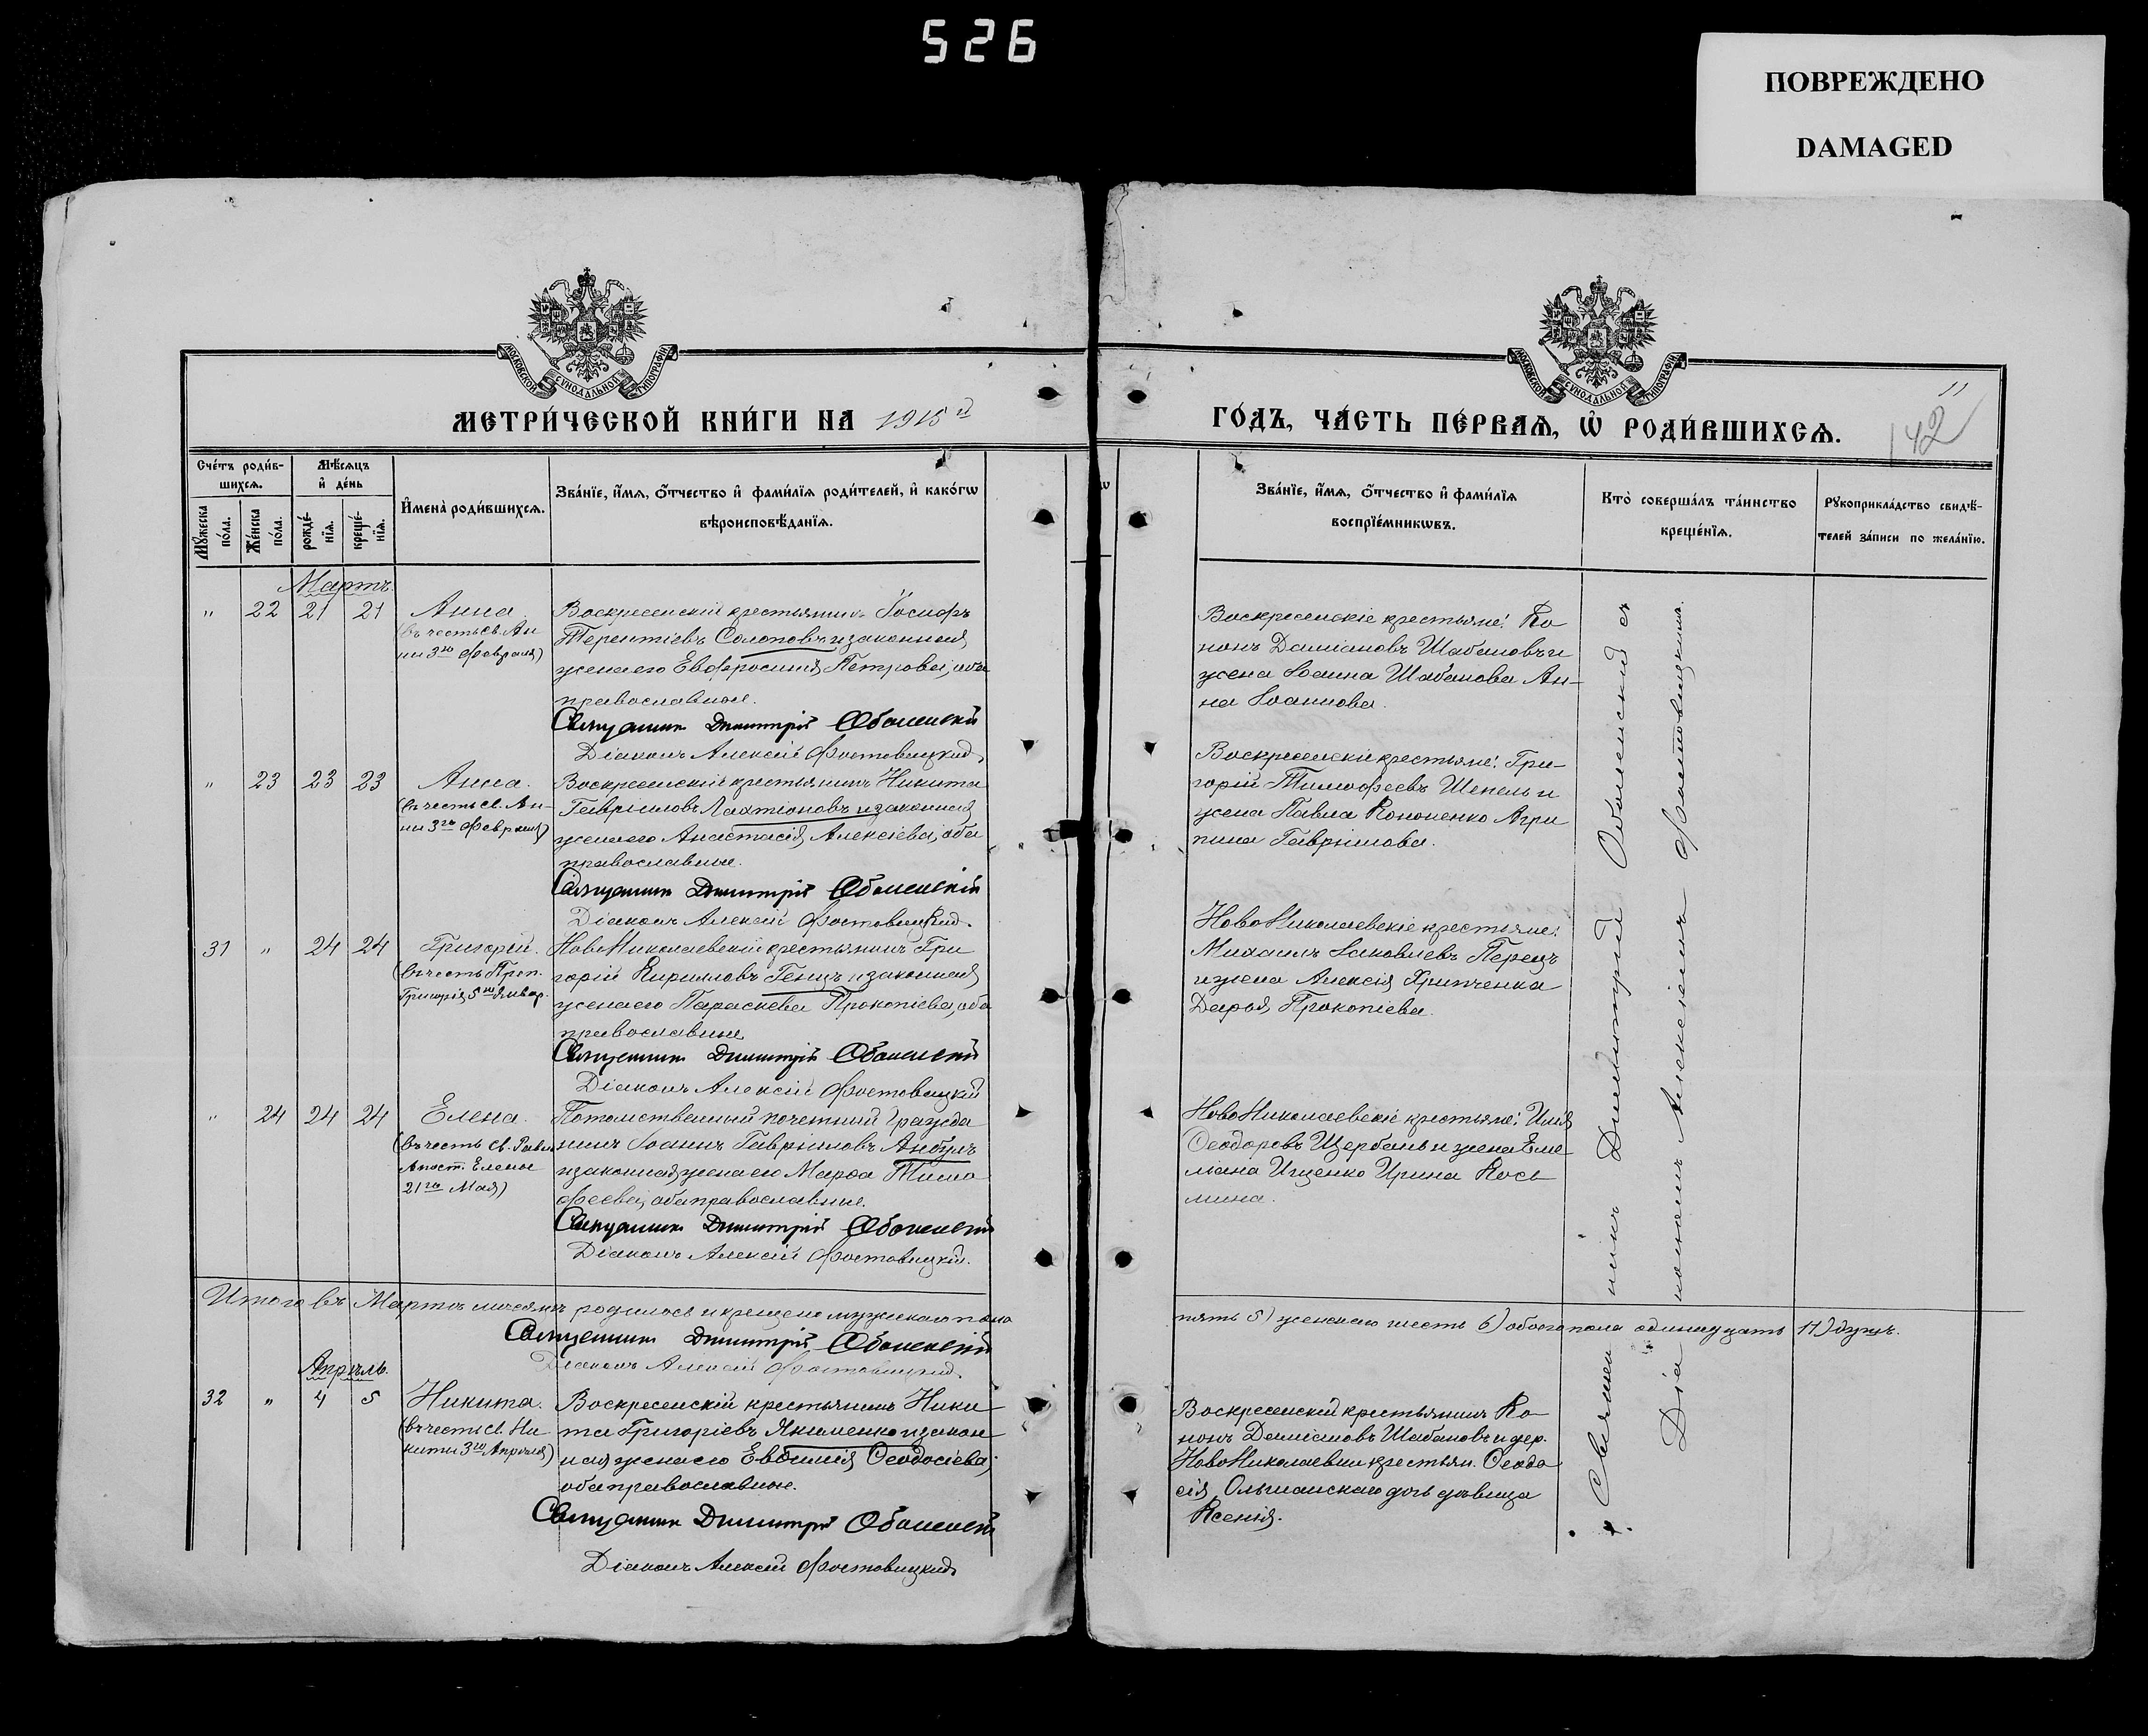 526
ПОВРЕЖДЕНО
DAMAGED
МОСКОВСКОЙ СУНОДАЛЬНОЙ ТИПОГРАФІИ
МОСКОВСКОЙ СУНОДАЛЬНОЙ ТИПОГРАФІИ
МЕТРИ́ЧЕСКОЙ КНИ́ГИ НА 1915 й
ГО́ДЪ, ЧА́СТЬ ПЕ́РВАѦ, Ѡ҆ РОДИ́ВШИХСѦ.
11
142
Сче́тъ роди́в-
шихсѧ.
Мѣ́сѧцъ
и҆ де́нь
Мꙋ́жеска
по́ла.
Же́нска
по́ла.
рожде́-
нїѧ.
креще́-
нїѧ.
И҆мена̀ роди́вшихсѧ.
Зва́нїе, и҆́мѧ, ѻ҆́тчество и҆ фами́лїѧ роди́телей, и҆ како́гѡ
вѣроисповѣ́данїѧ.
Зва́нїе, и҆́мѧ, ѻ҆́тчество и҆ фами́лїѧ
воспрїе́мникѡвъ.
Кто̀ соверша́лъ та́инство
креще́нїѧ.
Рꙋкоприкла́дство свидѣ́-
телей за́писи по жела́нїю.
Мартъ.
" 22 21 21 Анна
(въ честь св. Ан
ны 3го Февраля)
Воскресенскій крестьянинъ Іосифъ
Терентіевъ Солоповъ и законная
жена его Евфросинія Петрова, оба
православные.
Священникъ Димитрій Оболенскій
Діаконъ Алексій Фостовицкій
Воскресенскіе крестьяне: Ко
нонъ Даміановъ Шабановъ и
жена Іоанна Шабанова Ан-
на Іоаннова.
" 23 23 23 Анна.
(въ честь св. Ан-
ны 3го Февраля)
Воскресенскій крестьянинъ Никита
Гавріиловъ Лахтіоновъ и законная
жена его Анастасія Алексіева, оба
православные.
Священникъ Димитрій Оболенскій
Діаконъ Алексій Фостовицкій.
Воскресенскіе крестьяне: Гри-
горій Тимофеевъ Шепель и
жена Павла Кононенко Агри
пина Гавріилова.
31 " 24 24 Григорій.
(въ честь Преп.
Григорія 5го Январ.
НовоНиколаевскій крестьянинъ Гри
горій Кирилловъ Генцъ и законная
жена его Параскева Прокопіева, оба
православные
Священникъ Димитрій Оболенскій
Діаконъ Алексій Фостовицкій
НовоНиколаевскіе крестьяне:
Михаилъ Іаковлевъ Перецъ
и жена Алексія Хрипченка
Дарья Прокопіева.
" 24 24 24 Елена.
(въ честь св. Равн
Апост. Елены
21го Мая)
Потомственный почетный гражда
нинъ Іоаннъ Гавріиловъ Анбулъ
и законная жена его Марфа Тимо
феева, оба православные.
Священникъ Димитрій Оболенскій
Діаконъ Алексій Фостовицкій.
НовоНиколаевскіе крестьяне: Илія
Ѳеодоровъ Щербань и жена Еме
льяна Ищенко Ирина Кось
мина.
Итого въ Мартѣ мѣсяцѣ родилось и крещено мужескаго пола
пять 5) женскаго шесть 6) обоего пола одиннадцать 11) душъ.
Священникъ Димитрій Оболенскій
Діаконъ Алексій Фостовицкій.
Апрѣль.
32 " 4 5 Никита.
(въ честь св. Ни
киты 3го Апрѣля)
Воскресенскій крестьянинъ Ники
та Григоріевъ Якименко и закон
ная жена его Евѳимія Ѳеодосіева;
оба православные.
Священникъ Димитрій Оболенскій
Діаконъ Алексій Фостовицкій
Воскресенскій крестьянинъ Ко
нонъ Даміановъ Шабановъ и дер.
НовоНиколаевки крестьян. Ѳеодо
сія Ольшанскаго дочь дѣвица
Ксенія.
Священникъ Димитрій Оболенскій съ
Діакономъ Алексіемъ Фостовицкимъ.